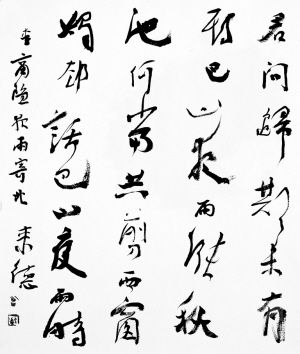 君問歸期未有
期巴山夜雨漲秋
池何當共剪西窗
燭却話巴山夜雨時
李商隐夜雨寄北 来德